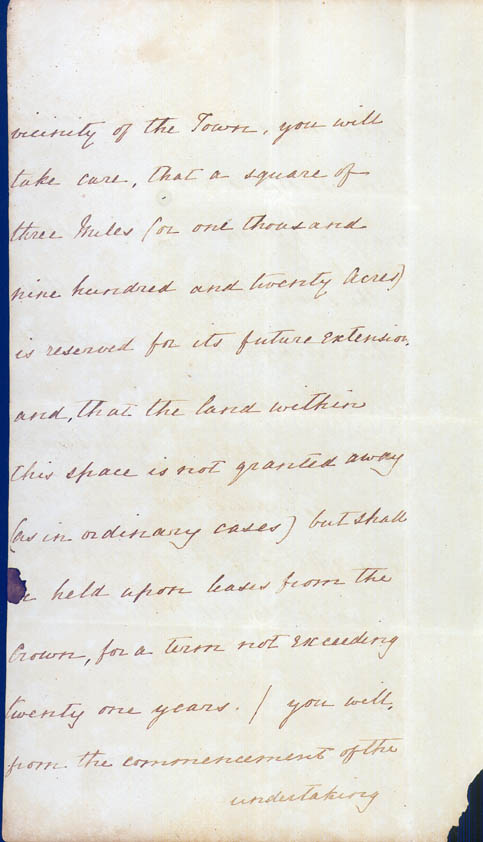 vicinity of the Town, you will
take care, that a square of
three Miles (or one thousand
nine hundred and twenty Acres)
is reserved for its future Extension,
and, that the land within
this space is not granted away
(as in ordinary cases) but shall
held upon leases from the
Crown, for a term not Exceeding
twenty one years. / you will,
from the commencement of the
undertaking